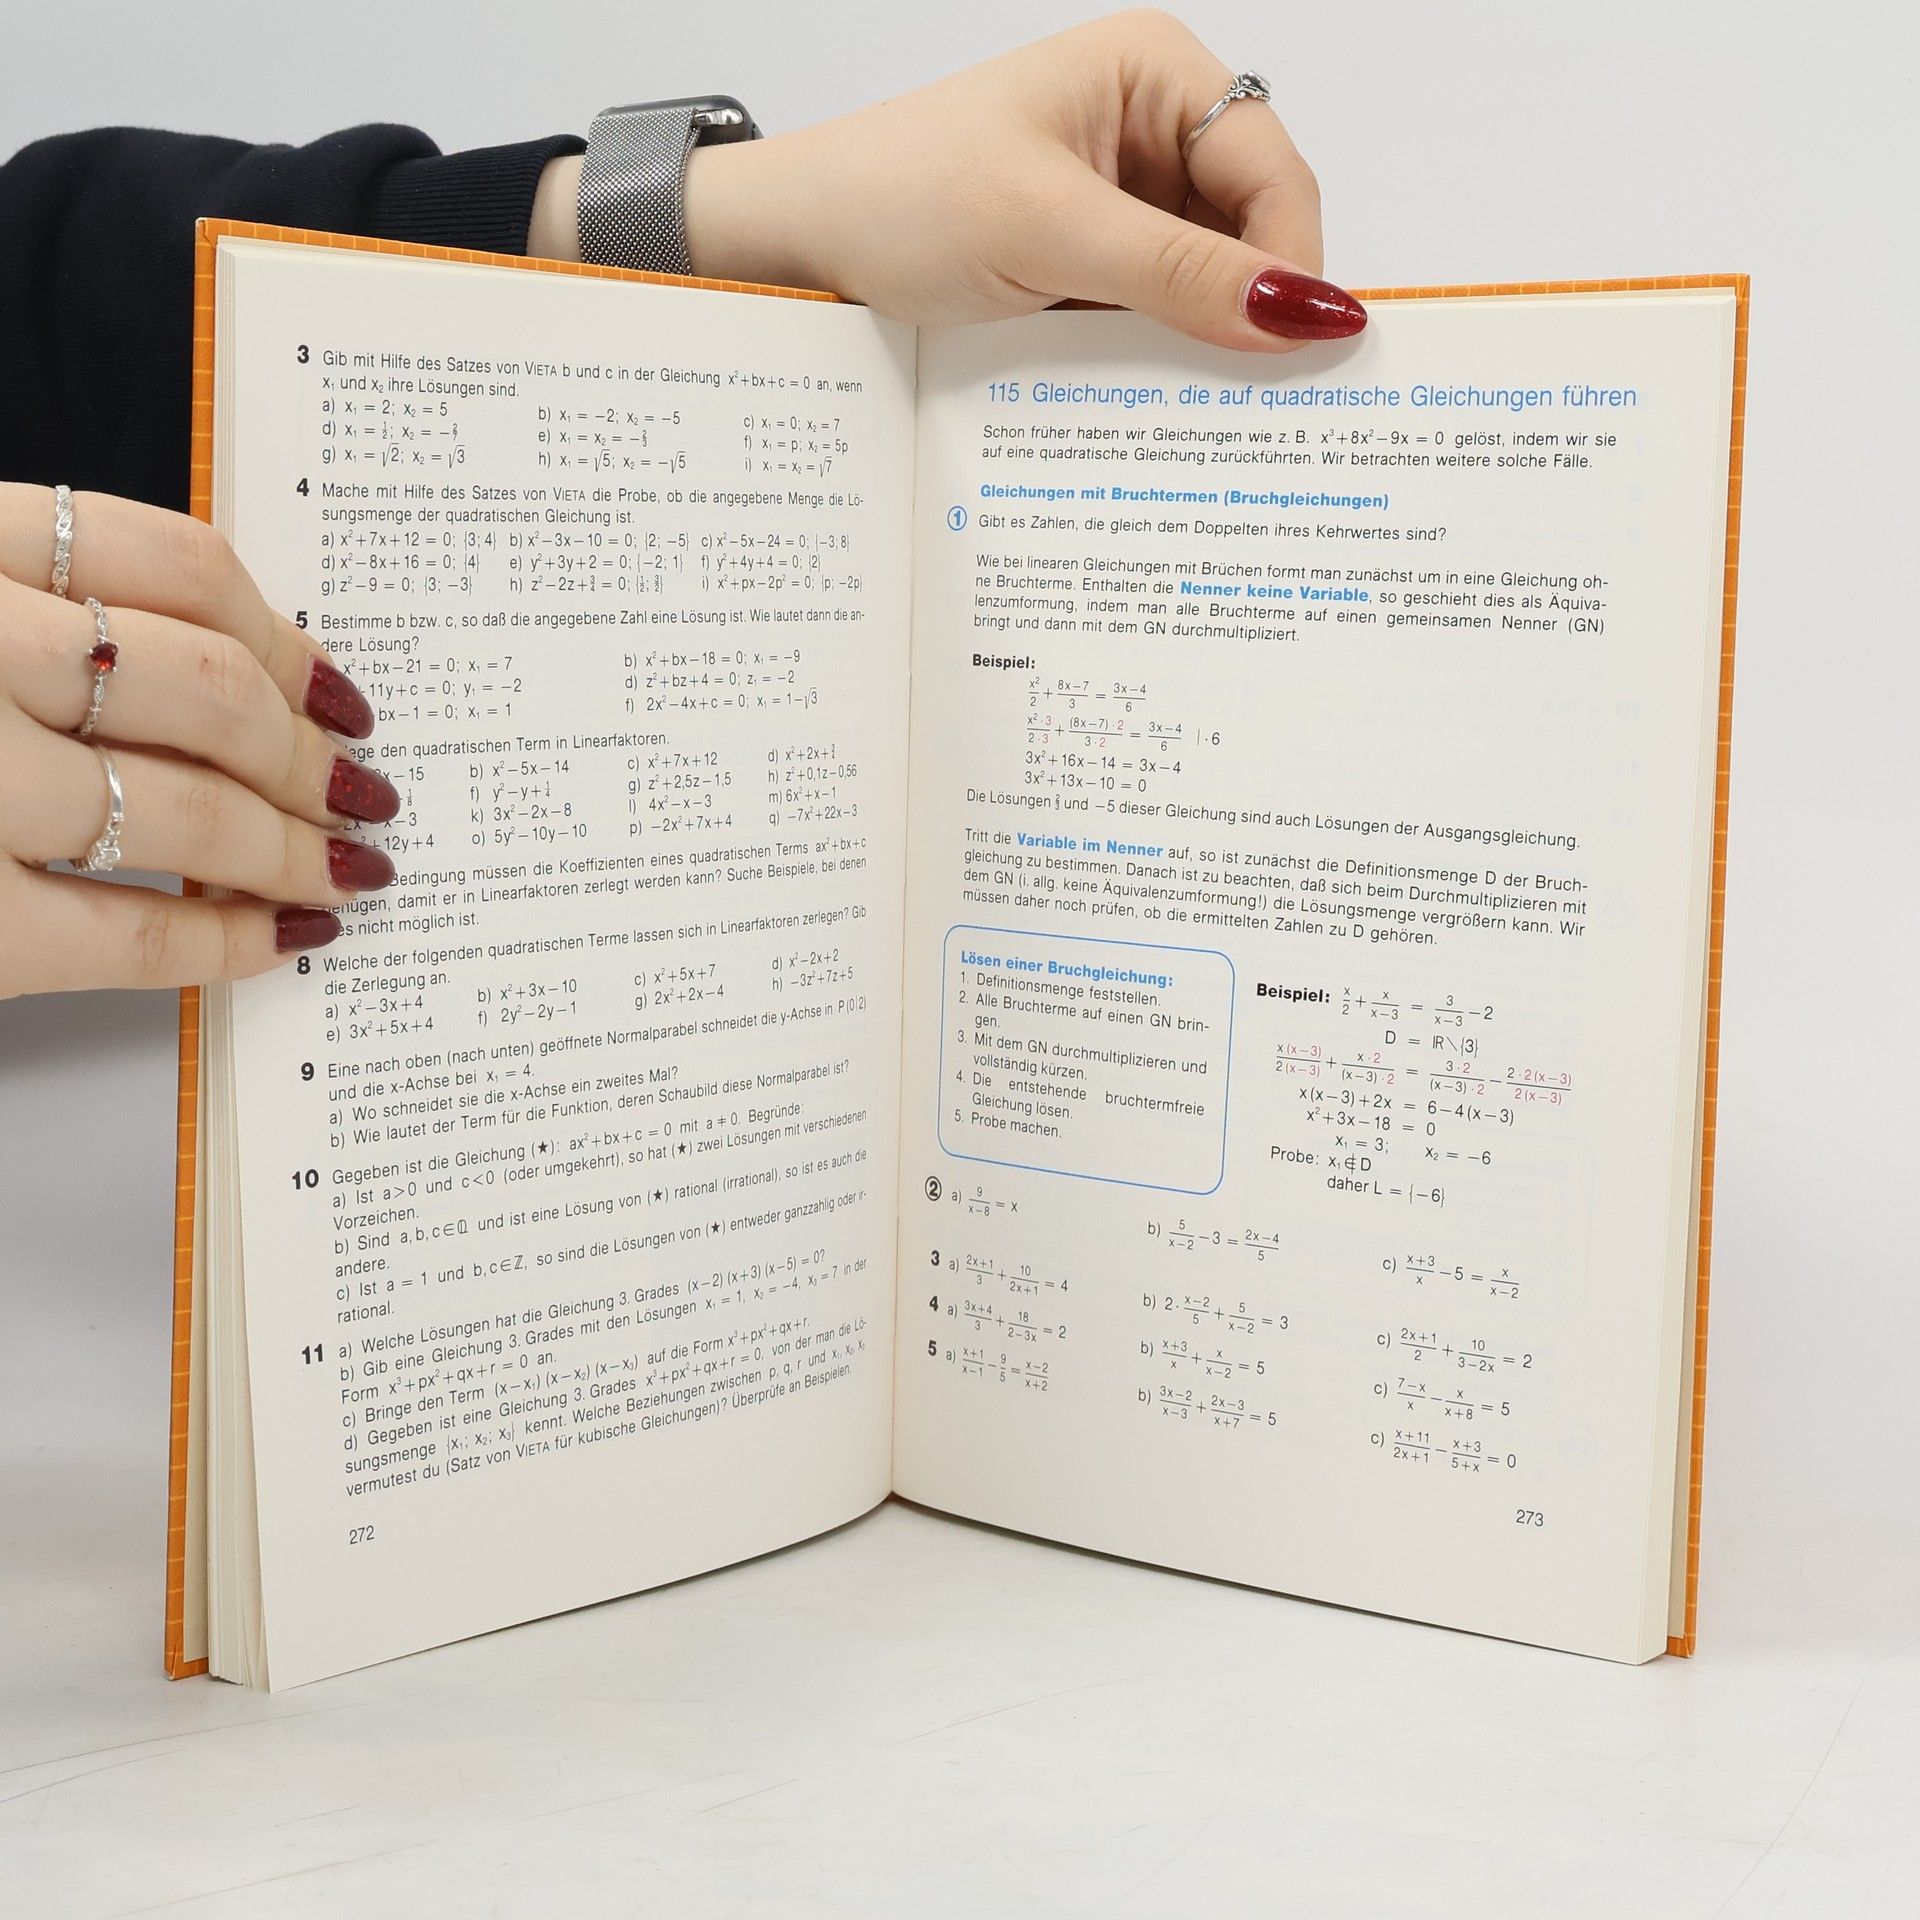 3 Gib mit Hilfe des Satzes von VIETA b und c in der Gleichung x²+bx+c = 0 an, wenn
x₁ und x₂ ihre Lösungen sind.
a) x₁ = 2; x₂ = 5 b) x₁ = −2; x₂ = −5 c) x₁ = 0; x₂ = 7
d) x₁ = ½; x₂ = −2/7 e) x₁ = x₂ = −2/3 f) x₁ = p; x₂ = 5p
g) x₁ = √2; x₂ = √3 h) x₁ = √5; x₂ = −√5 i) x₁ = x₂ = √7
4 Mache mit Hilfe des Satzes von VIETA die Probe, ob die angegebene Menge die Lö-
sungsmenge der quadratischen Gleichung ist.
a) x²+7x+12 = 0; {3; 4} b) x²−3x−10 = 0; {2; −5} c) x²−5x−24 = 0; {−3; 8}
d) x²−8x+16 = 0; {4} e) y²+3y+2 = 0; {−2; 1} f) y²+4y+4 = 0; {2}
g) z²−9 = 0; {3; −3} h) z²−2z+¾ = 0; {½; 3/2} i) x²+px−2p² = 0; {p; −2p}
5 Bestimme b bzw. c, so daß die angegebene Zahl eine Lösung ist. Wie lautet dann die an-
dere Lösung?
x²+bx−21 = 0; x₁ = 7 b) x²+bx−18 = 0; x₁ = −9
11y+c = 0; y₁ = −2 d) z²+bz+4 = 0; z₁ = −2
bx−1 = 0; x₁ = 1 f) 2x²−4x+c = 0; x₁ = 1−√3
den quadratischen Term in Linearfaktoren.
x−15 b) x²−5x−14 c) x²+7x+12 d) x²+2x+¾
⅛ f) y²−y+¼ g) z²+2,5z−1,5 h) z²+0,1z−0,56
x−3 k) 3x²−2x−8 l) 4x²−x−3 m) 6x²+x−1
+12y+4 o) 5y²−10y−10 p) −2x²+7x+4 q) −7x²+22x−3
Bedingung müssen die Koeffizienten eines quadratischen Terms ax²+bx+c
genügen, damit er in Linearfaktoren zerlegt werden kann? Suche Beispiele, bei denen
es nicht möglich ist.
8 Welche der folgenden quadratischen Terme lassen sich in Linearfaktoren zerlegen? Gib
die Zerlegung an.
a) x²−3x+4 b) x²+3x−10 c) x²+5x+7 d) x²−2x+2
e) 3x²+5x+4 f) 2y²−2y−1 g) 2x²+2x−4 h) −3z²+7z+5
9 Eine nach oben (nach unten) geöffnete Normalparabel schneidet die y-Achse in P(0|2)
und die x-Achse bei x₁ = 4.
a) Wo schneidet sie die x-Achse ein zweites Mal?
b) Wie lautet der Term für die Funktion, deren Schaubild diese Normalparabel ist?
10 Gegeben ist die Gleichung (★): ax²+bx+c = 0 mit a ≠ 0. Begründe:
a) Ist a>0 und c<0 (oder umgekehrt), so hat (★) zwei Lösungen mit verschiedenen
Vorzeichen.
b) Sind a,b,c∈ℚ und ist eine Lösung von (★) rational (irrational), so ist es auch die
andere.
c) Ist a = 1 und b,c∈ℤ, so sind die Lösungen von (★) entweder ganzzahlig oder ir-
rational.
11 a) Welche Lösungen hat die Gleichung 3. Grades (x−2)(x+3)(x−5) = 0?
b) Gib eine Gleichung 3. Grades mit den Lösungen x₁ = 1, x₂ = −4, x₃ = 7 in der
Form x³+px²+qx+r = 0 an.
c) Bringe den Term (x−x₁)(x−x₂)(x−x₃) auf die Form x³+px²+qx+r.
d) Gegeben ist eine Gleichung 3. Grades x³+px²+qx+r = 0, von der man die Lö-
sungsmenge {x₁; x₂; x₃} kennt. Welche Beziehungen zwischen p, q, r und x₁, x₂, x₃
vermutest du (Satz von VIETA für kubische Gleichungen)? Überprüfe an Beispielen.
272
115 Gleichungen, die auf quadratische Gleichungen führen
Schon früher haben wir Gleichungen wie z. B. x³+8x²−9x = 0 gelöst, indem wir sie
auf eine quadratische Gleichung zurückführten. Wir betrachten weitere solche Fälle.
Gleichungen mit Bruchtermen (Bruchgleichungen)
① Gibt es Zahlen, die gleich dem Doppelten ihres Kehrwertes sind?
Wie bei linearen Gleichungen mit Brüchen formt man zunächst um in eine Gleichung oh-
ne Bruchterme. Enthalten die Nenner keine Variable, so geschieht dies als Äquiva-
lenzumformung, indem man alle Bruchterme auf einen gemeinsamen Nenner (GN)
bringt und dann mit dem GN durchmultipliziert.
Beispiel:
x²/2 + (8x−7)/3 = (3x−4)/6
(x²·3)/(2·3) + ((8x−7)·2)/(3·2) = (3x−4)/6 |·6
3x²+16x−14 = 3x−4
3x²+13x−10 = 0
Die Lösungen ⅔ und −5 dieser Gleichung sind auch Lösungen der Ausgangsgleichung.
Tritt die Variable im Nenner auf, so ist zunächst die Definitionsmenge D der Bruch-
gleichung zu bestimmen. Danach ist zu beachten, daß sich beim Durchmultiplizieren mit
dem GN (i. allg. keine Äquivalenzumformung!) die Lösungsmenge vergrößern kann. Wir
müssen daher noch prüfen, ob die ermittelten Zahlen zu D gehören.
Lösen einer Bruchgleichung:
1. Definitionsmenge feststellen.
2. Alle Bruchterme auf einen GN brin-
gen.
3. Mit dem GN durchmultiplizieren und
vollständig kürzen.
4. Die entstehende bruchtermfreie
Gleichung lösen.
5. Probe machen.
Beispiel: x/2 + x/(x−3) = 3/(x−3) − 2
D = ℝ∖{3}
x(x−3)/2(x−3) + x·2/(x−3)·2 = 3·2/(x−3)·2 − 2·2(x−3)/2(x−3)
x(x−3)+2x = 6−4(x−3)
x²+3x−18 = 0
x₁ = 3; x₂ = −6
Probe: x₁∉D
daher L = {−6}
② a) 9/(x−8) = x b) 5/(x−2) − 3 = (2x−4)/5 c) (x+3)/x − 5 = x/(x−2)
3 a) (2x+1)/3 + 10/(2x+1) = 4 b) 2·(x−2)/5 + 5/(x−2) = 3 c) (2x+1)/2 + 10/(3−2x) = 2
4 a) (3x+4)/3 + 18/(2−3x) = 2 b) (x+3)/x + x/(x−2) = 5 c) (7−x)/x − x/(x+8) = 5
5 a) (x+1)/(x−1) − 9/5 = (x−2)/(x+2) b) (3x−2)/(x−3) + (2x−3)/(x+7) = 5 c) (x+11)/(2x+1) − (x+3)/(5+x) = 0
273